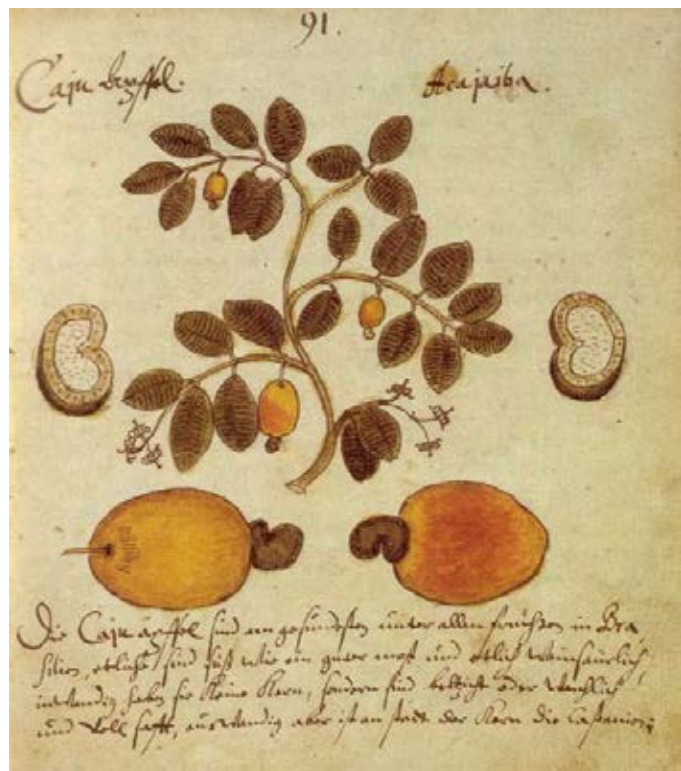 91.
Caju Äpffel. Acajaiba.
Die Caju äpffel sind am gesündesten unter allen früchten in Bra
silien, etliche sind süß wie ein guter most und etlich weinsäurlich,
inwendig haben sie keine Kern, sondern sind oder
und voll safft, auswendig aber ist an statt der Kern die Castanien